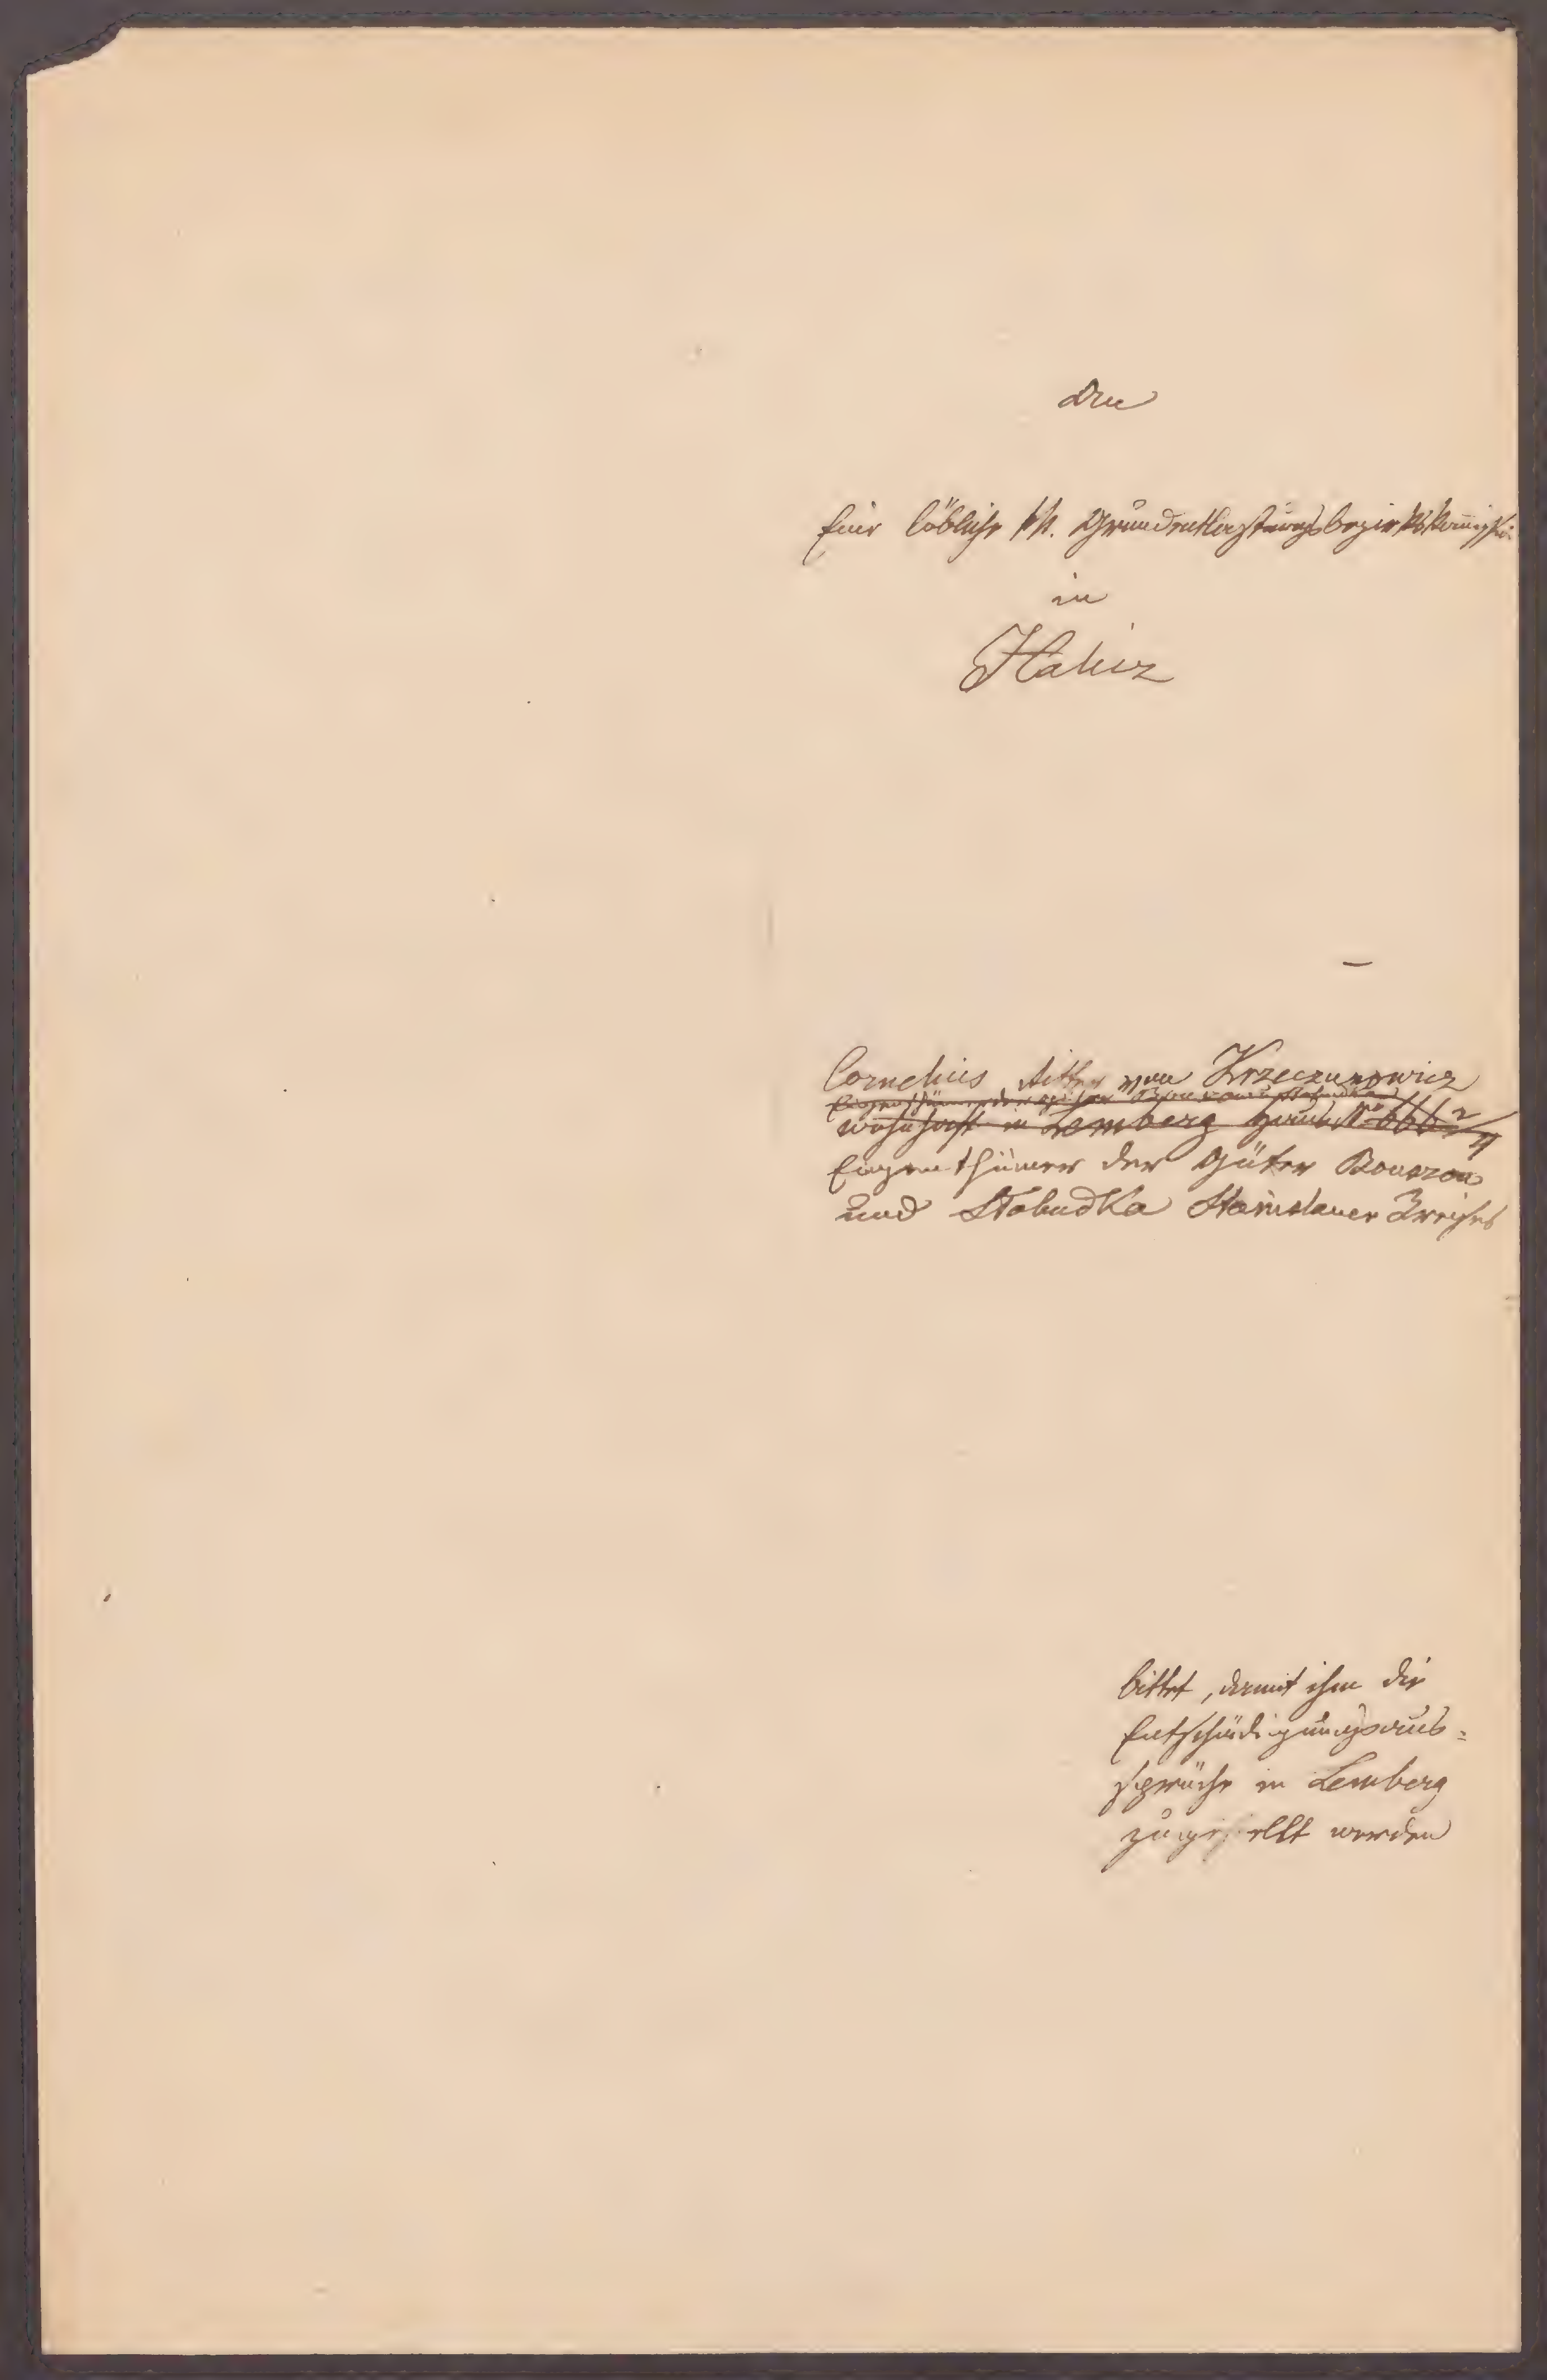 An
Eine löbliche kk. Grundentlastungsbezirkskommissio
in
Halicz
Cornelius Ritter von Krzeczunowicz
Eigenthümer der Güter
wohnhaft in Lemberg Haus No 666 2/4
Eigenthümer der Güter Bouszow
und Słobudka Stanislauer Kreises
bittet, damit ihm die
Entschädigungsaus=
sprüche in Lemberg
zugestellt werden